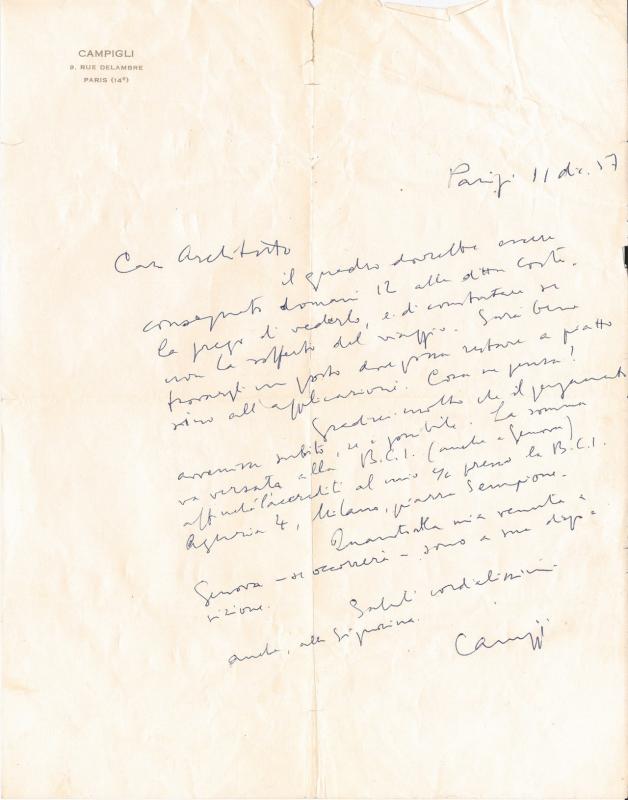 CAMPIGLI
9. RUE DELAMBRE
PARIS (14e)
Parigi 11 dic. 57
Caro Architetto
il quadro dovrebbe essere
consegnato domani 12 alla ditta Costi.
La prego di vederlo, e di constatare se
non ha sofferto del viaggio. Sarà bene
trovargli un posto dove possa restare a piatto
sino all'applicazione. Cosa ne pensa?
Gradirei molto che il pagamento
avvenisse subito, se è possibile. La somma
va versata alla B.C.I. (anche a Genova)
affinché l'accrediti al mio c/c presso la B.C.I.
Agenzia 4, Milano, piazza Sempione.
Quanto alla mia venuta a
Genova – se occorrerà – sono a sua dispo=
sizione.
Saluti cordialissimi
anche, alla Signorina.
Campigli